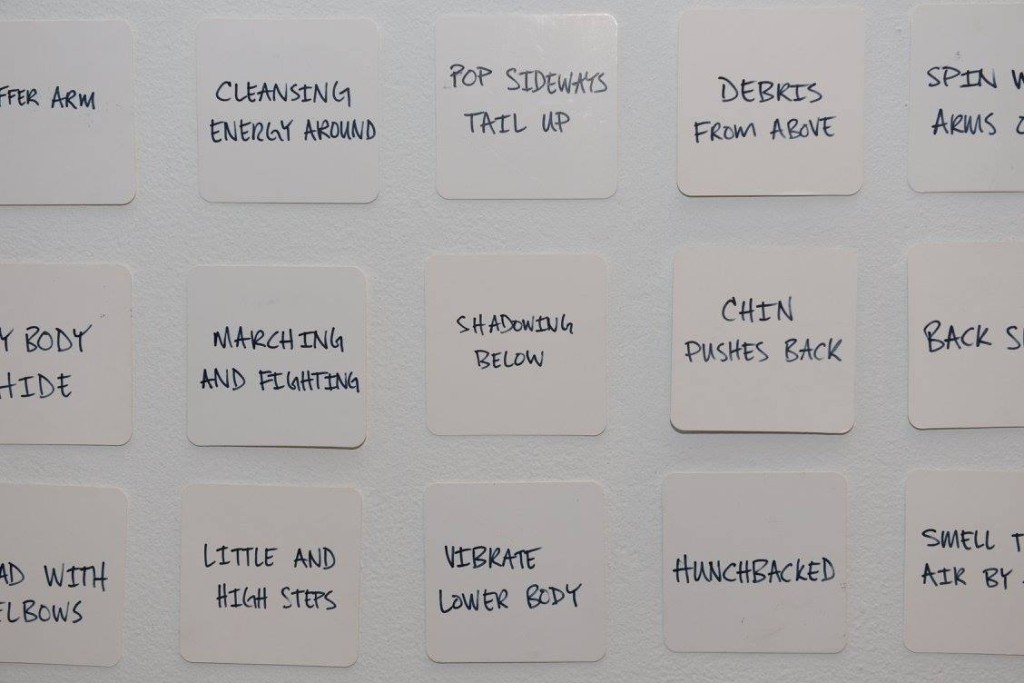 ARM
CLEANSING
ENERGY AROUND
POP SIDEWAYS
TAIL UP
DEBRIS
FROM ABOVE
SPIN
ARMS
BODY
HIDE
MARCHING
AND FIGHTING
SHADOWING
BELOW
CHIN
PUSHES BACK
BACK
WITH
ELBOWS
LITTLE AND
HIGH STEPS
VIBRATE
LOWER BODY
HUNCHBACKED
SMELL
AIR BY